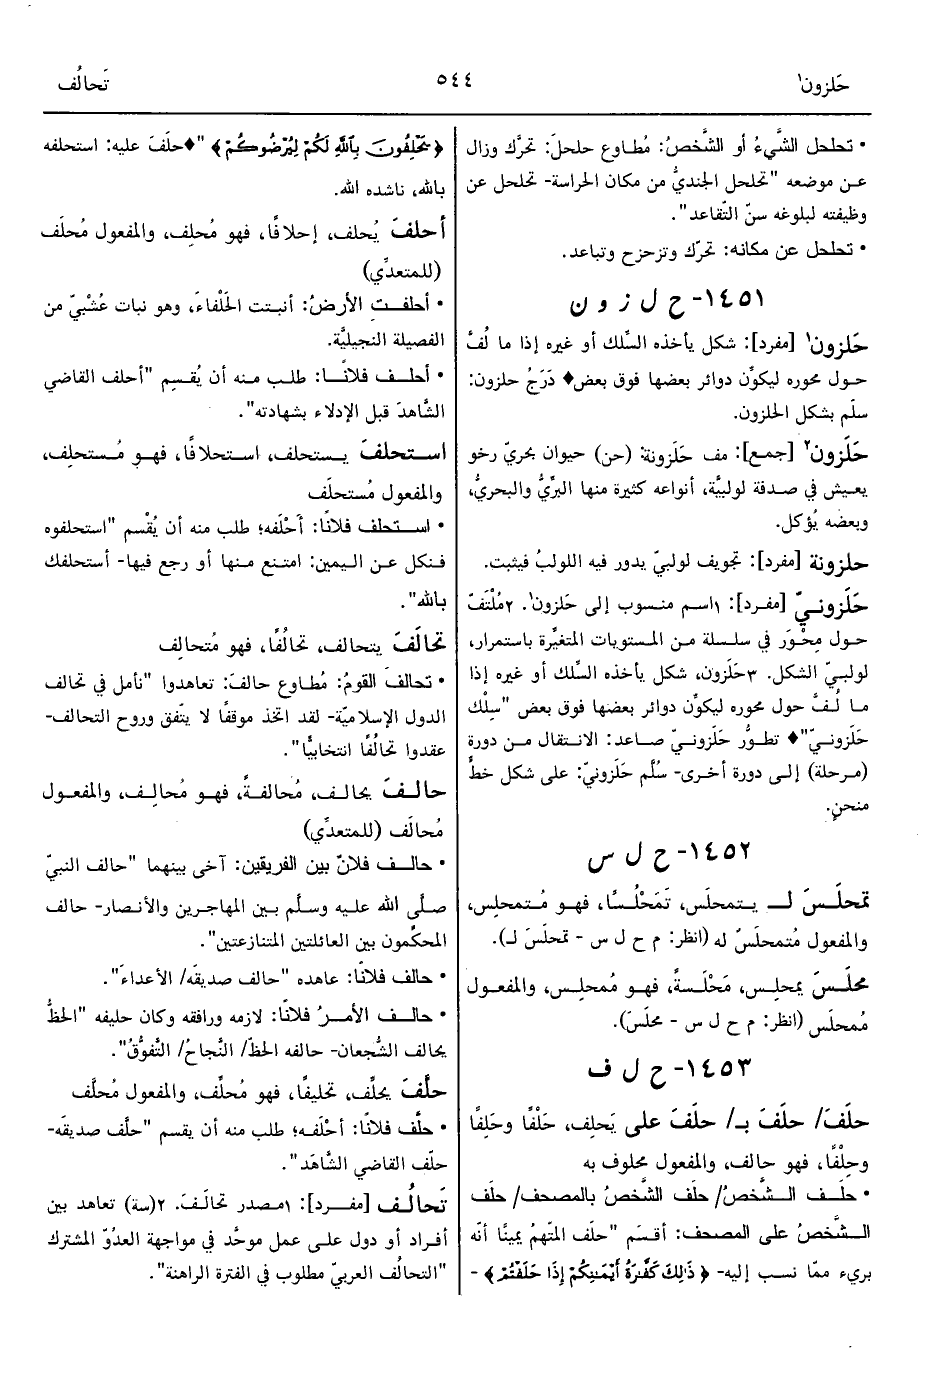 حَلزون١
٥٤٤
تَحالُف
• تحلحل الشَّيءُ أو الشَّخصُ: مُطاوع حلحلَ: تحرَّك وزال
عـن موضعه "تحلحل الجنديُّ من مكان الحراسة- تحلحل عن
وظيفته لبلوغه سنّ التَّقاعد".
• تحلحل عن مكانه: تحرَّك وتزحزح وتباعد.
١٤٥١- ح ل ز و ن
حَلزون١ [مفرد]: شكل يأخذه السِّلك أو غيره إذا ما لُفَّ
حـول محوره ليكوِّن دوائر بعضها فوق بعض♦ دَرَجُ حلزون:
سلّم بشكل الحلزون.
حَلَزون٢ [جمع]: مف حَلَزونة: (حن) حيوان بحريّ رخو
يعـيش في صـدفة لولبيَّة، أنواعه كثيرة منها البرّيُّ والبحريُّ،
وبعضه يُؤكل.
حلزونة [مفرد]: تجويف لولبيّ يدور فيه اللولبُ فيثبت.
حَلَزونـيّ [مفـرد]: ١اسـم منسوب إلى حَلزون١. ٢مُلْتَفّ
حول مِحْوَر في سلسلة مـن المستويات المتغيِّرة باستمرار،
لولبـيّ الشكل. ٣حَلَزون، شكل يأخذه السِّلك أو غيره إذا
مـا لُـفَّ حول محوره ليكوِّن دوائر بعضها فوق بعض "سِلْك
حَلَزونيّ"♦ تطوُّر حَلَزونيّ صاعد: الانتقال مـن دورة
(مـرحلة) إلـى دورة أخـرى- سُلَّم حَلَزونيّ: على شكل خطٍّ
منحنٍ.
١٤٥٢- ح ل س
تمحلَـسَ لـ يـتمحلَس، تَمَحْلُـسًا، فهـو مُـتمحلِس،
والمفعول مُتمحلَسٌ له (انظر: م ح ل س - تمحلَسَ لـ).
محلَـسَ يمحلِس، مَحْلَسةً، فهـو مُمحلِـس، والمفعـول
مُمحلَس (انظر: م ح ل س - محلَسَ).
١٤٥٣- ح ل ف
حلَفَ/ حلَفَ بـ/ حلَفَ على يَحلِف، حَلْفًا وحَلِفًا
وحِلْفًا، فهو حالف، والمفعول محلوف به
• حلَـف الـشَّخصُ/ حلَف الشَّخصُ بالمصحف/ حلَف
الـشَّخصُ على المصحف: أقسَم "حلَف المتَّهمُ يمينًا أنّه
بريء ممّا نسب إليه- ﴿ ذَٰلِكَ كَفَّٰرَةُ أَيْمَٰنِكُمْ إِذَا حَلَفْتُمْ ﴾ -
﴿ يَحْلِفُونَ بِٱللَّهِ لَكُمْ لِيُرْضُوكُمْ ﴾ "♦حلَفَ عليه: استحلفه
بالله، ناشده الله.
أحلفَ يُحلف، إحلافًا، فهو مُحلِف، والمفعول مُحلَف
(للمتعدِّي)
• أحلفت الأرضُ: أنبتت الحَلْفاءَ، وهو نبات عُشْبيّ من
الفصيلة النجيليَّة.
• أحلـف فلانًـا: طلب مـنه أن يُقـسِم "أحلف القاضي
الشَّاهدَ قبل الإدلاء بشهادته".
اسـتحلفَ يـستحلف، اسـتحلافًا، فهـو مُـستحلِف،
والمفعول مُستحلَف
• اسـتحلف فلانًا: أَحْلَفه؛ طلب منه أن يُقْسم "استحلفوه
فـنكل عـن الـيمين: امتـنع مـنها أو رجع فيها- أستحلفك
بالله".
تحالَفَ يتحالف، تحالُفًا، فهو مُتحالِف
• تحالفَ القومُ: مُطاوع حالفَ: تعاهدوا "نأمل في تحالف
الدول الإسلاميّة- لقد اتخذ موقفًا لا يتّفق وروح التحالف-
عقدوا تحالُفًا انتخابيًّا".
حالـفَ يحالـف، مُحالفـةً، فهـو مُحالِـف، والمفعـول
مُحالَف (للمتعدِّي)
• حالـف فلانٌ بين الفريقين: آخى بينهما "حالف النبيّ
صلَّـى الله عليه وسلَّم بين المهاجرين والأنـصار- حالف
المحكِّمون بين العائلتين المتنازعتين".
• حالف فلانًا: عاهده "حالف صديقَه/ الأعداءَ".
• حالـف الأمـرُ فلانًا: لازمه ورافقه وكان حليفه "الحظُّ
يحالف الشُّجعان- حالفه الحظّ/ النَّجاحُ/ التَّفوُّقُ".
حلَّفَ يحلِّف، تحليفًا، فهو مُحلِّف، والمفعول مُحلَّف
• حلَّف فلانًا: أحْلَفه؛ طلب منه أن يقسم "حلَّف صديقَه-
حلّف القاضي الشَّاهَد".
تَحالُف [مفـرد]: ١مـصدر تحالَفَ. ٢(سة) تعاهد بين
أفـراد أو دول علـى عمل موحَّد في مواجهة العدوّ المشترك
"التحالُف العربيّ مطلوب في الفترة الراهنة".